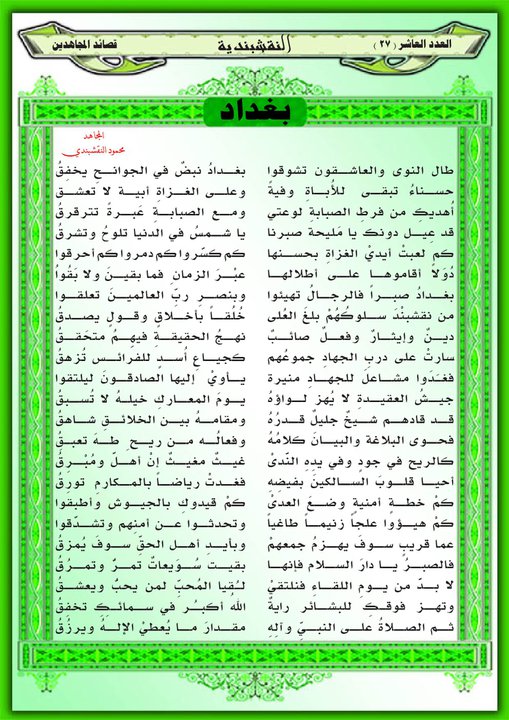 العدد العاشر (٢٧) النقشبندية قصائد المجاهدين
بغداد
المجاهد
محمود النقشبندي
طال النوى والعاشقون تشوقوا بغدادُ نبضٌ في الجوانح يخفِقُ
حسناءُ تبقى للأباةِ وفيةً وعلى الغزاة أبية لا تعشقُ
أهديكِ من فرط الصبابة لوعتي ومع الصبابةِ عَبرةً تترقرقُ
قد عِيل دونكِ يا مَليحة صبرنا يا شمسُ في الدنيا تلوحُ وتشرقُ
كم لعبتْ أيديْ الغزاة بحسنها كم كسّروا كم دمروا كم أحرقوا
دُوَلاً أقاموها على أطلالها عبْرَ الزمانِ فما بقينَ ولا بَقُوا
بغدادُ صبراً فالرجالُ تهيئوا وبنصرِ ربِّ العالمينَ تعلقوا
من نقشبنْدَ سلوكُهُمْ بلغَ العُلى خُلُقاً بأخلاقٍ وقولٍ يصدقُ
دينٌ وإيثارٌ وفعلٌ صائبٌ نهجُ الحقيقةِ فيهمُ متحققُ
سارتْ على دربِ الجهادِ جموعُهم كجياعِ أُسدٍ للفرائسِ تزهقُ
فغدَوا مشاعلَ للجهادِ منيرة يأويْ إليها الصادقونَ ليلتقوا
جيشُ العقيدةِ لا يُهز لواؤهُ يومَ المعاركِ خيلهُ لا تُسبقُ
قد قادهم شيخٌ جليلٌ قدرُهُ ومقامهُ بين الخلائقِ شاهقُ
فحوى البلاغةَ والبيانَ كلامُهُ وفعالُه من ريحِ طه تعبقُ
كالريحِ في جودٍ وفي يدِهِ النّدىْ غيثٌ مغيثٌ إنْ أهلَّ ومُبْرِقُ
أحيا قلوبَ السالكينَ بفيضِهِ فغدتْ رياضاً بالمكارمِ تورِقُ
كم خطةٍ أمنيةٍ وضعَ العدىْ كمْ قيدوكِ بالجيوشِ وأطبقوا
كمْ هيؤوا علجاً زنيماً طاغياً وتحدثوا عن أمنِهم وتشدّقوا
عما قريبٍ سوف يهزمُ جمعهم وبأيدِ أهلِ الحقِّ سوفَ يُمزقُ
فالصبرُ يا دارَ السلامِ فإنها بقيتْ سُوَيعاتٌ تمرُ وتمرُقُ
لا بدَّ من يومِ اللقاءِ فنلتقيْ لُقيا المُحبِّ لمن يحبُّ ويعشقُ
وتهز فوقكِ للبشائر رايةً اللهُ أكبرُ في سمائكِ تخفقُ
ثم الصلاةُ على النبيِّ وآلهِ مقدارَ ما يُعطيْ الإلهُ ويرزُقُ